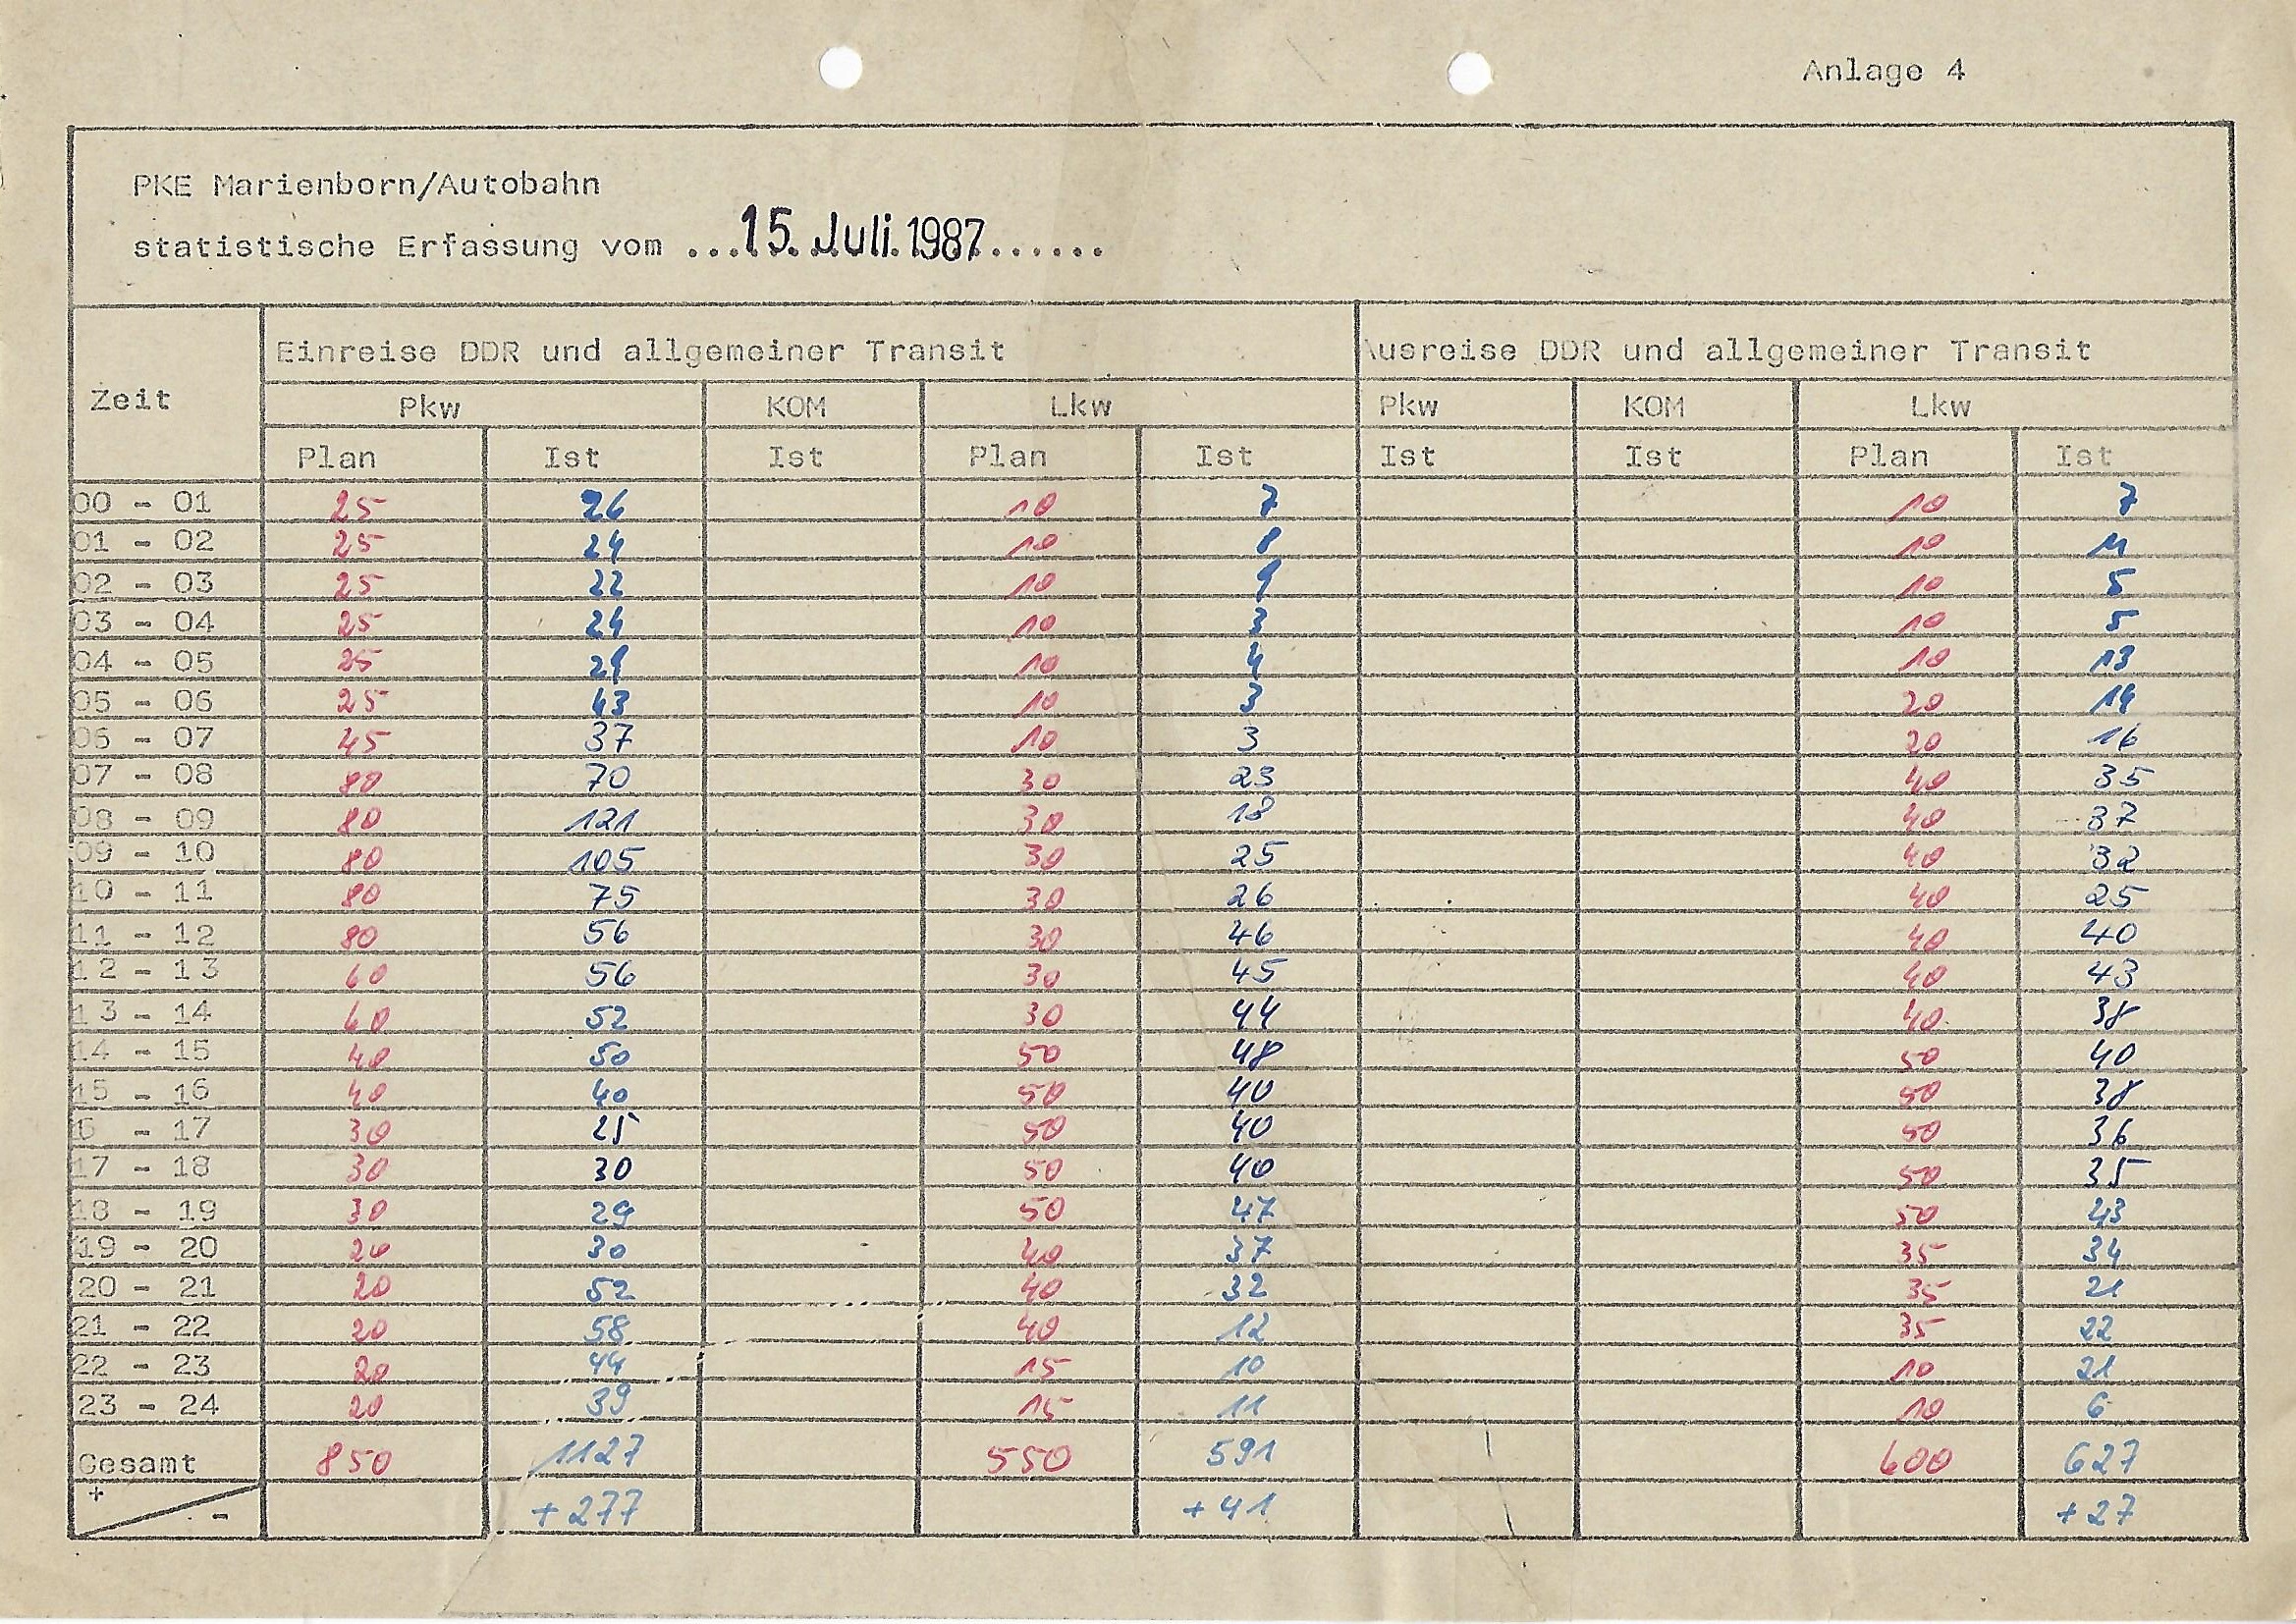 Anlage 4
PKE Marienborn/Autobahn
statistische Erfassung vom ...15. Juli 1987......
Zeit Einreise DDR und allgemeiner Transit Ausreise DDR und allgemeiner Transit
Pkw KOM Lkw Pkw KOM Lkw
Plan Ist Ist Plan Ist Ist Ist Plan Ist
00 - 01 25 26 10 7 10 7
01 - 02 25 24 10 8 10 11
02 - 03 25 22 10 9 10 5
03 - 04 25 24 10 3 10 5
04 - 05 25 29 10 4 10 13
05 - 06 25 43 10 3 20 14
06 - 07 45 37 10 3 20 16
07 - 08 80 70 30 23 40 35
08 - 09 80 121 30 18 40 37
09 - 10 80 105 30 25 40 32
10 - 11 80 75 30 26 40 25
11 - 12 80 56 30 46 40 40
12 - 13 60 56 30 45 40 43
13 - 14 60 52 30 44 40 38
14 - 15 40 50 50 48 50 40
15 - 16 40 40 50 40 50 38
6 - 17 30 25 50 40 50 36
17 - 18 30 30 50 40 50 35
18 - 19 30 29 50 47 50 43
19 - 20 20 30 40 37 35 34
20 - 21 20 52 40 32 35 21
21 - 22 20 58 40 12 35 22
22 - 23 20 44 15 10 10 21
23 - 24 20 39 15 11 10 6
Gesamt 850 1127 550 591 600 627
+ - +277 +41 +27